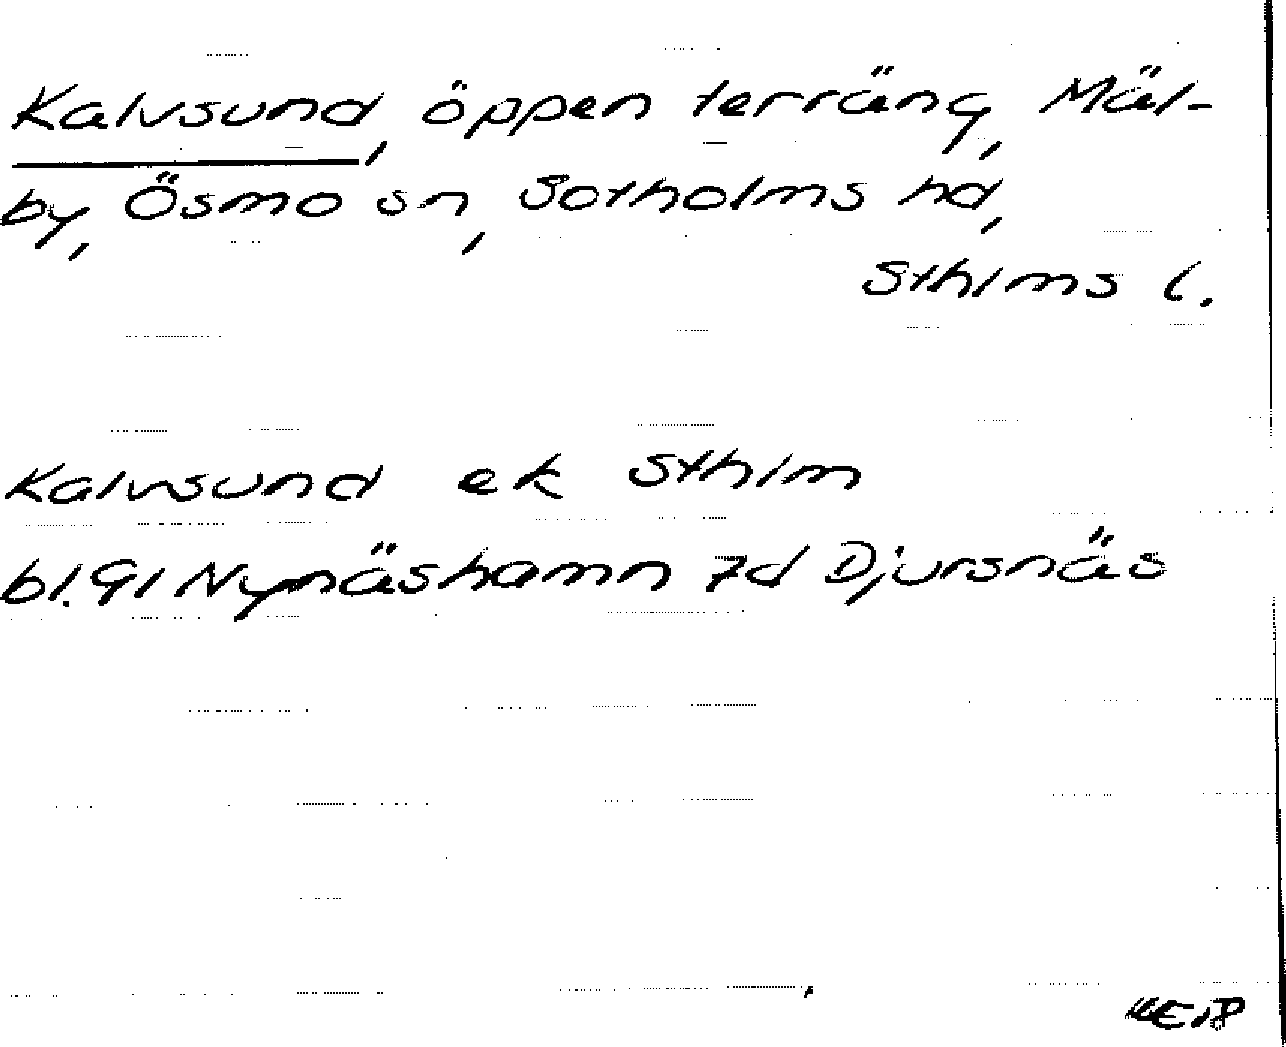 Kalvsund, öppen terräng, Mäl-
by, Ösmo sn, Sotholms hd,
Sthlms l.
Kalvsund ek Sthlm
bl. 91 Nynäshamn 7d Djursnäs